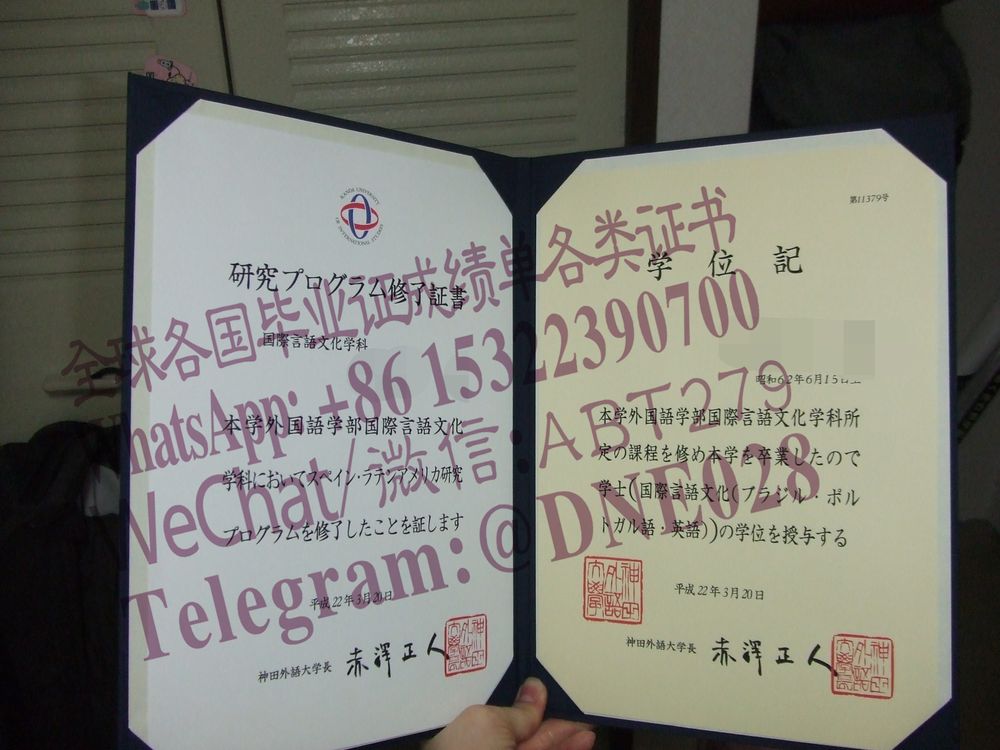 KANDA UNIVERSITY
OF INTERNATIONAL STUDIES
研究プログラム修了証書
国際言語文化学科
本学外国語学部国際言語文化
学科においてスペイン・ラテンアメリカ研究
プログラムを修了したことを証します
平成22年3月20日
神田外語大学長 赤澤正人
第11379号
学位記
昭和62年6月15日生
本学外国語学部国際言語文化学科所
定の課程を修め本学を卒業したので
学士(国際言語文化(ブラジル・ポル
トガル語・英語))の学位を授与する
平成22年3月20日
神田外語大学長 赤澤正人
全球各国毕业证成绩单各类证书
WhatsApp: +86 15322390700
WeChat/微信:ABT279
Telegram:@DNE028